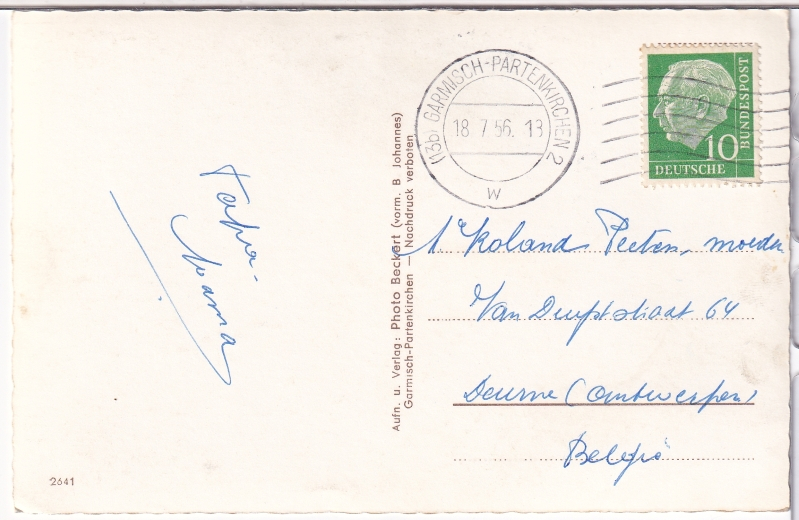 (13b) GARMISCH-PARTENKIRCHEN 2
18.7.56. 13
W
BUNDESPOST
10
DEUTSCHE
Papa-
Mama
Aufn. u. Verlag: Photo Beckert (vorm. B Johannes)
Garmisch-Partenkirchen — Nachdruck verboten
Roland Peeten, moeder
Van Duyststraat 64
Deurne (Antwerpen)
België
2641